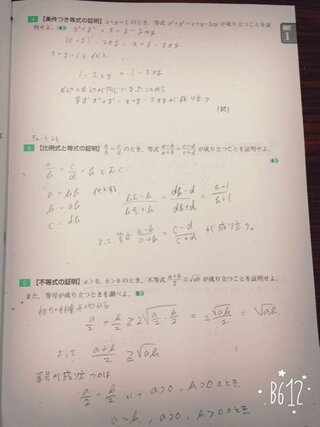 1
4 【条件つき等式の証明】 x+y=1のとき，等式 x²+y²=x+y-2xy が成り立つことを証
明せよ。
x²+y² = x+y-2xy
(x+y)²-2xy = x+y-2xy
x+y=1を代入
1-2xy = 1-2xy
等式 x²+y²=x+y-2xyが成り立つ
5 【比例式と等式の証明】 a/b=c/d のとき，等式 (a-b)/(a+b)=(c-d)/(c+d) が成り立つことを証明せよ。
a/b = c/d = k とおく
a = bk 代入する
(bk-b)/(bk+b) = (dk-d)/(dk+d) = (k-1)/(k+1)
c = dk
よって等式 (a-b)/(a+b) = (c-d)/(c+d) が成り立つ。
6 【不等式の証明】 a>0, b>0のとき，不等式 (a+b)/2≧√ab が成り立つことを証明せよ。
また，等号が成り立つときを調べよ。
相加相乗平均から
a/2 + b/2 ≧ 2√(a/2・b/2) = 2√ab/2 = √ab
よって (a+b)/2 ≧ √ab
等号が成り立つのは
a/2 = b/2 かつ a>0, b>0のとき
a=b, a>0, b>0のとき
B612